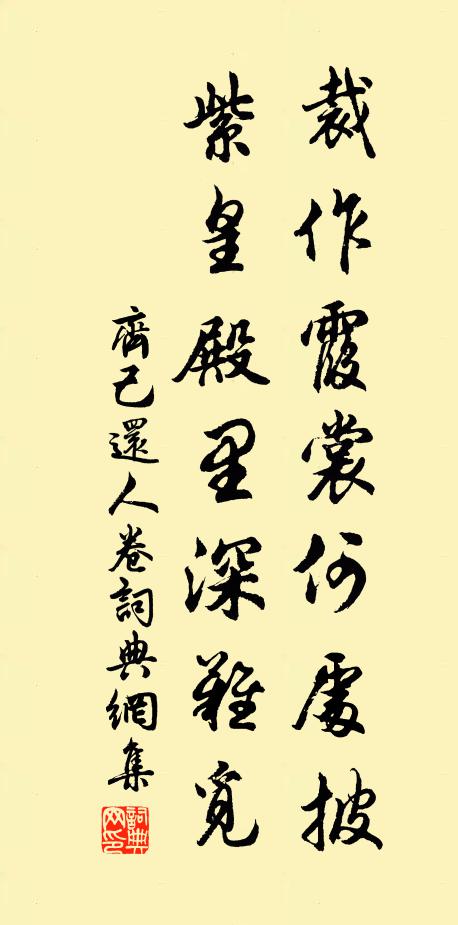 裁作霞裳何處披
紫皇殿里深難覓
齊己還人卷詞典網集
詞典網印